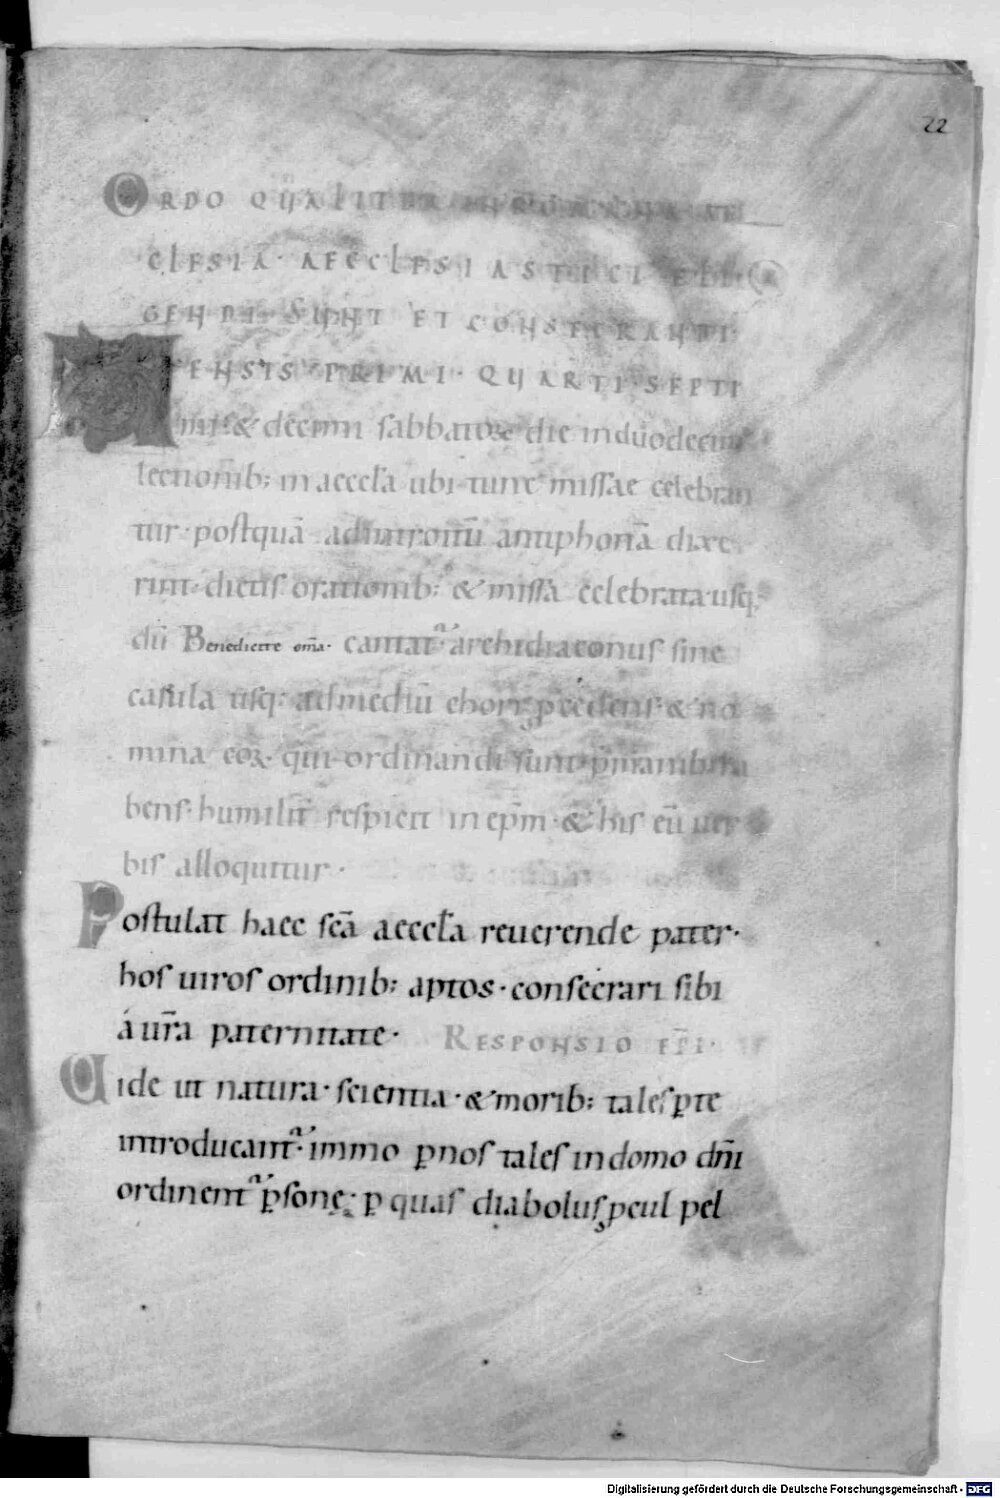 22
ORDO QUALITER IN ROMANA AEC
CLESIA AECCLESIASTICI ELI
GENDI SUNT ET CONSECRANDI
MENSIS PRIMI · QUARTI · SEPTI
mi · & decimi sabbatorū die induodecim
lectionib; in aeccła ubi tunc missae celebran
tur · postquā adintroitū antiphonā dixe
rint · dictis orationib; & missa celebrata usq;
dū Benedicite om̄a · cantat᷑ archidiaconus sine
casula usq; admediū chori p̄cedens · & no
mina eoꝝ qui ordinandi sunt p̄manibus ha
bens · humilit̄ respicit in ep̄m · & his eū uer
bis alloquitur ·
Postulat haec sc̄a aeccła reuerende pater ·
hos uiros ordinib; aptos · consecrari sibi
á ur̄a paternitate · RESPONSIO EP̄I ·
Uide ut natura · scientia · & morib; tales ꝑte
introducant᷑ · immo ꝑnos tales indomo dn̄i
ordinent᷑ ꝑsonę · ꝑ quas diabolus ꝓcul pel
Digitalisierung gefördert durch die Deutsche Forschungsgemeinschaft - DFG